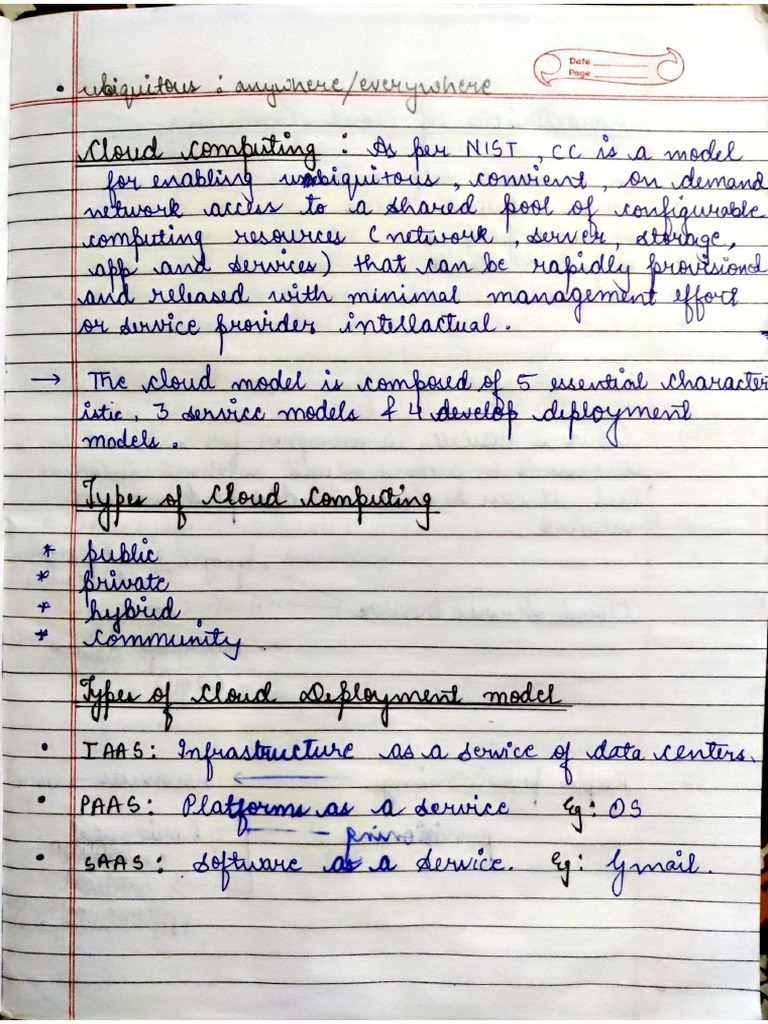 Date
Page
• ubiquitous : anywhere/everywhere
Cloud Computing : As per NIST, CC is a model
for enabling unbiquitous, convient, on demand
network access to a shared pool of configurable
computing resources (network, server, storage,
app and services) that can be rapidly provisional
and released with minimal management effort
or service provider intellactual.
→ The cloud model is composed of 5 essential character
istic, 3 service models & 4 develop deployment
models.
Types of Cloud Computing
* public
* private
* hybrid
* community
Types of Cloud Deployment model
• IAAS: Infrastructure as a service of data centers.
• PAAS: Platforms as a service Eg: OS
• SAAS: Software as a service. Eg: Gmail.